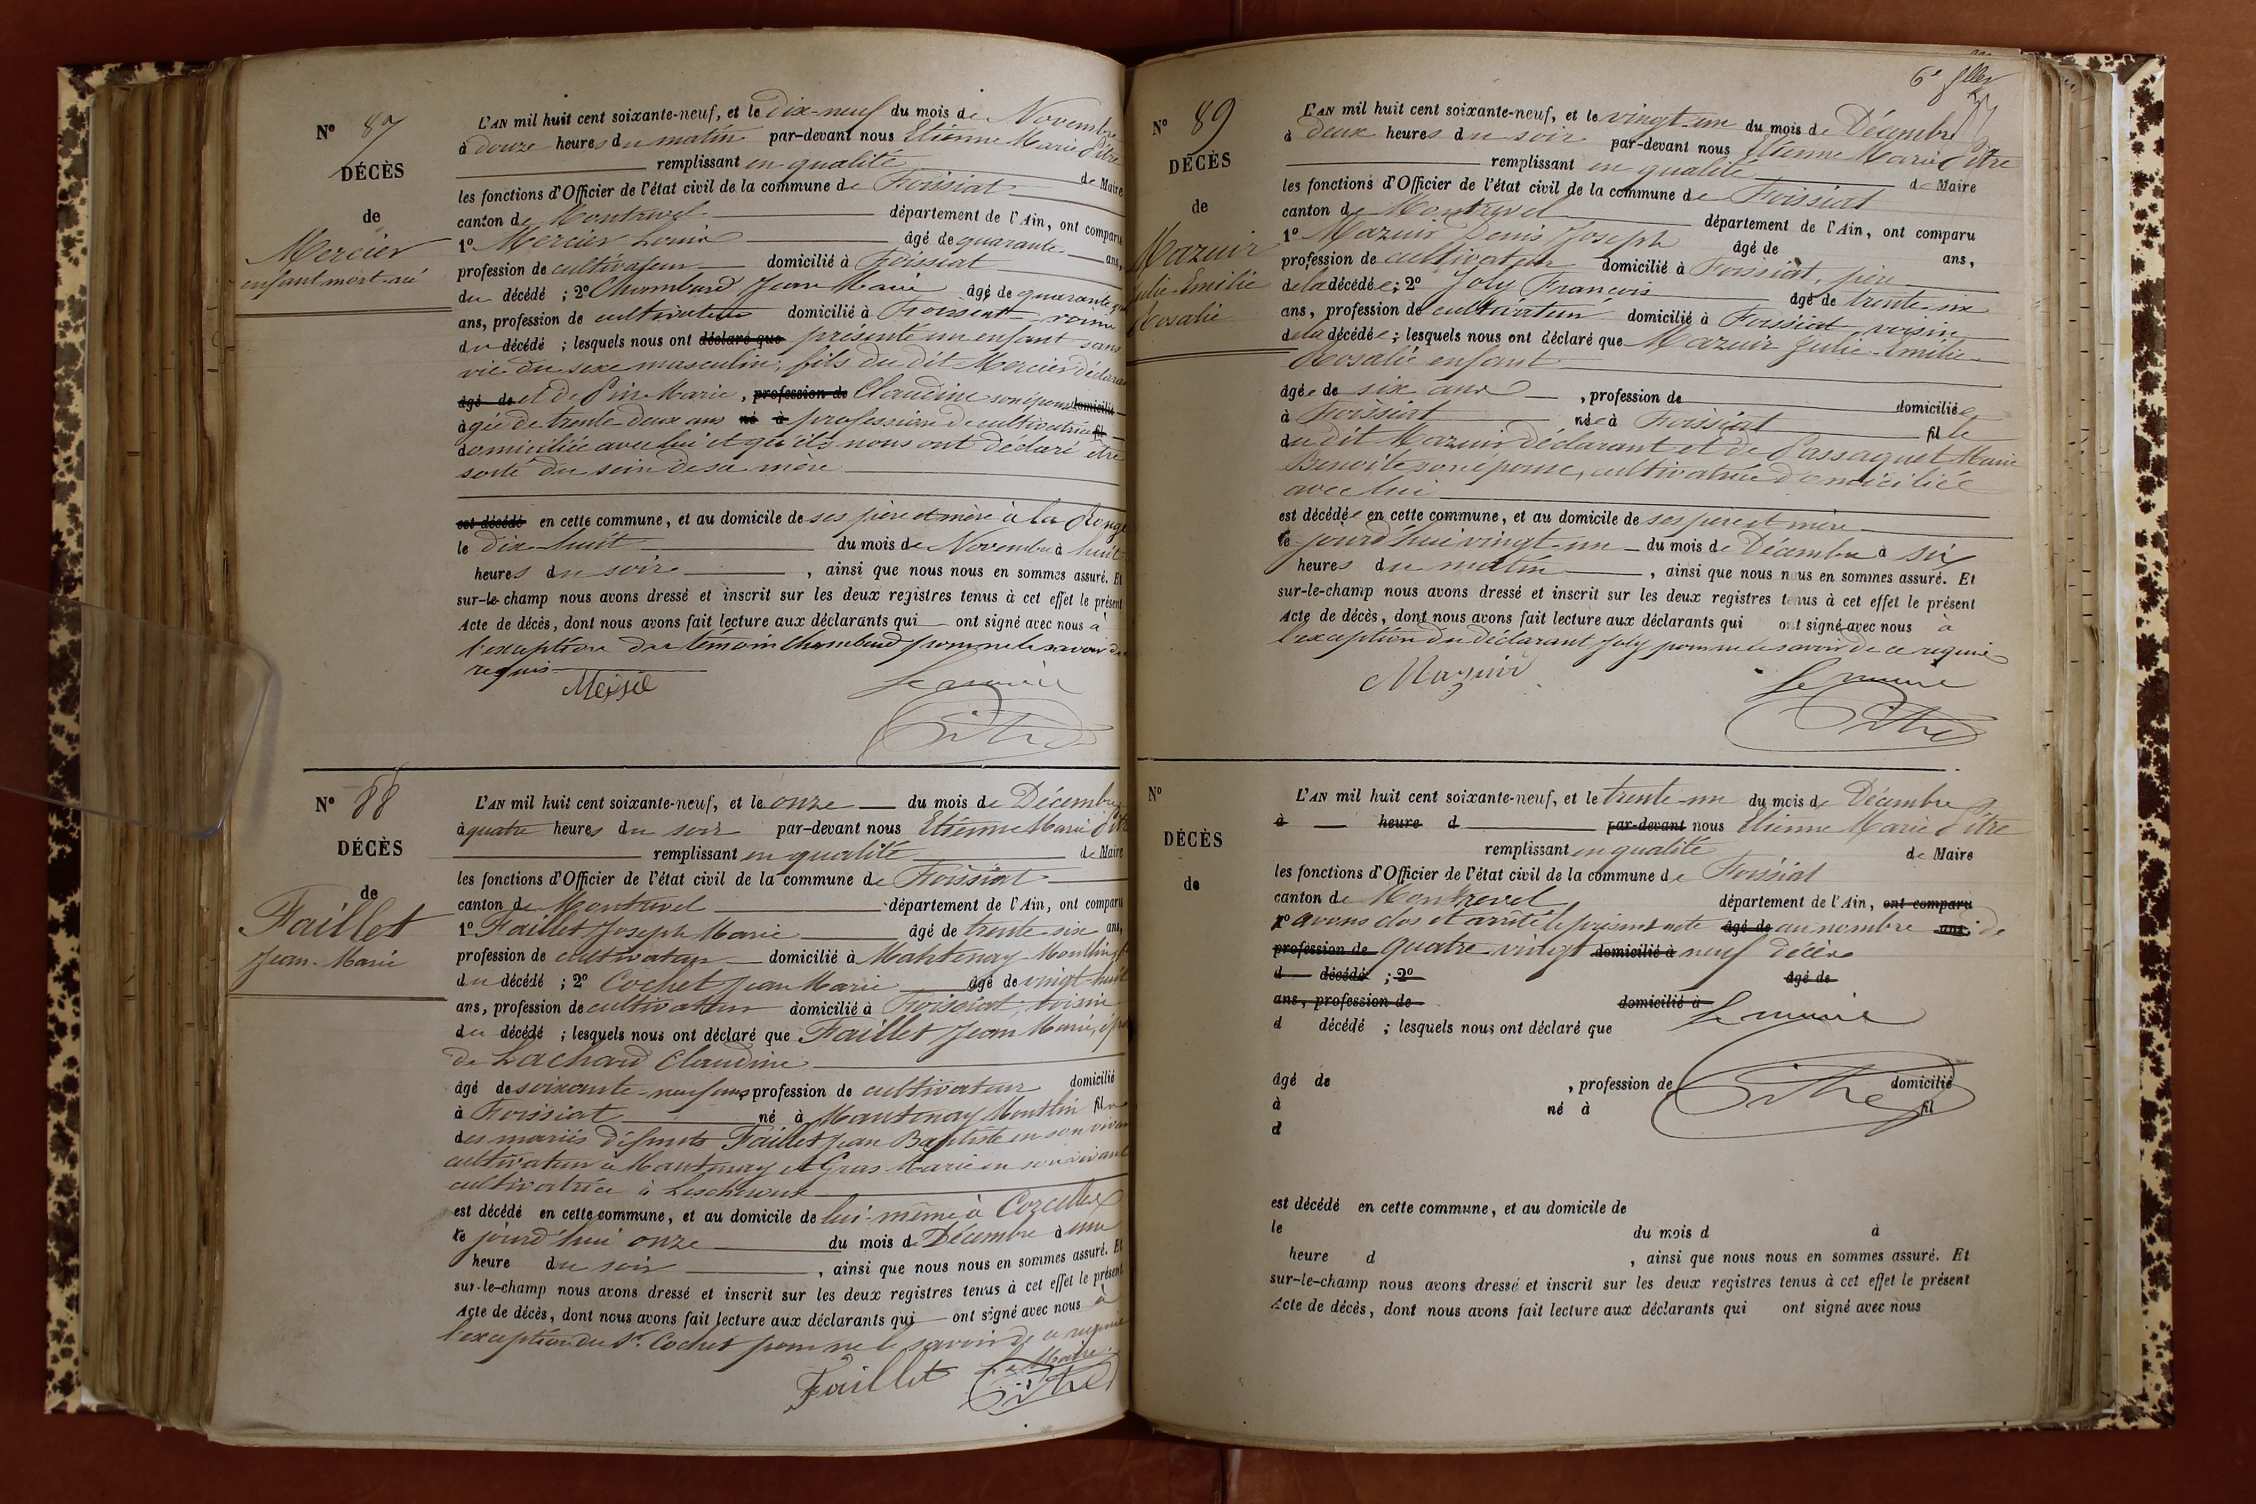 N° 87
DÉCÈS
de
Mercier
enfant mort-né
L'AN mil huit cent soixante-neuf, et le dix-neuf du mois de Novembre
à douze heures du matin par-devant nous Etienne Marie Pitre
remplissant en qualité de Maire
les fonctions d'Officier de l'état civil de la commune de Foissiat
canton de Montrevel département de l'Ain, ont comparu
1° Mercier Louis âgé de quarante ans,
profession de cultivateur domicilié à Foissiat
du décédé ; 2° Chambard Jean Marie âgé de quarante
ans, profession de cultivateur domicilié à Foissiat voisin
du décédé ; lesquels nous ont déclaré que présenté un enfant sans
vie du sexe masculin, fils du dit Mercier déclarant
âgé de et de Pin Marie, profession de Claudine son épouse domicilié
âgée de trente deux ans né à profession de cultivatrice fil
domiciliée avec lui et qu'ils nous ont déclaré être
sorti du sein de sa mère
est décédé en cette commune, et au domicile de ses père et mère à la
le dix-huit du mois de Novembre à huit
heures du soir , ainsi que nous nous en sommes assuré. Et
sur-le-champ nous avons dressé et inscrit sur les deux registres tenus à cet effet le présent
Acte de décès, dont nous avons fait lecture aux déclarants qui ont signé avec nous à
l'exception du témoin Chambard pour ne le savoir de
requis
Le maire
Pitre
N° 88
DÉCÈS
de
Faillet
Jean-Marie
L'AN mil huit cent soixante-neuf, et le onze du mois de Décembre
à quatre heures du soir par-devant nous Etienne Marie Pitre
remplissant en qualité de Maire
les fonctions d'Officier de l'état civil de la commune de Foissiat
canton de Montrevel département de l'Ain, ont comparu
1° Faillet Joseph Marie âgé de trente-six ans,
profession de cultivateur domicilié à Mantenay-Montlin
du décédé ; 2° Cochet Jean Marie âgé de vingt-huit
ans, profession de cultivateur domicilié à Foissiat, voisin
du décédé ; lesquels nous ont déclaré que Faillet Jean Marie,
de Lachard Claudine
âgé de soixante-neuf ans profession de cultivateur domicilié
à Foissiat né à Mantenay Montlin fils
des mariés défunts Faillet Jean Baptiste en son vivant
cultivateur à Mantenay et Gras Marie en son vivant
cultivatrice à Lescheroux
est décédé en cette commune, et au domicile de lui-même à Corcelles
le jourd'hui onze du mois de Décembre à une
heure du soir , ainsi que nous nous en sommes assuré. Et
sur-le-champ nous avons dressé et inscrit sur les deux registres tenus à cet effet le présent
Acte de décès, dont nous avons fait lecture aux déclarants qui ont signé avec nous à
l'exception du Sr. Cochet pour ne le savoir de ce requis
Faillet Le Maire
Pitre
6e
N° 89
DÉCÈS
de
Mazuir
Julie-Emilie
Rosalie
L'AN mil huit cent soixante-neuf, et le vingt-un du mois de Décembre
à deux heures du soir par-devant nous Etienne Marie Pitre
remplissant en qualité de Maire
les fonctions d'Officier de l'état civil de la commune de Foissiat
canton de Montrevel département de l'Ain, ont comparu
1° Mazuir Denis Joseph âgé de ans,
profession de cultivateur domicilié à Foissiat, père
de la décédée ; 2° Joly François âgé de trente-six
ans, profession de cultivateur domicilié à Foissiat, voisin
de la décédée ; lesquels nous ont déclaré que Mazuir Julie-Emilie
Rosalie enfant
âgée de six ans , profession de domiciliée
à Foissiat née à Foissiat fille
du dit Mazuir déclarant et de Passaquet Marie
Benoite son épouse, cultivatrice domiciliée
avec lui
est décédée en cette commune, et au domicile de ses père et mère
le jourd'hui vingt-un du mois de Décembre à six
heures du matin , ainsi que nous nous en sommes assuré. Et
sur-le-champ nous avons dressé et inscrit sur les deux registres tenus à cet effet le présent
Acte de décès, dont nous avons fait lecture aux déclarants qui ont signé avec nous à
l'exception du déclarant Joly pour ne le savoir de ce requis
Mazuir Le maire
Pitre
N°
DÉCÈS
de
L'AN mil huit cent soixante-neuf, et le trente-un du mois de Décembre
à heure d par-devant nous Etienne Marie Pitre
remplissant en qualité de Maire
les fonctions d'Officier de l'état civil de la commune de Foissiat
canton de Montrevel département de l'Ain, ont comparu
1° avons clos et arrêté le présent acte âgé de au nombre ans, de
profession de quatre vingt domicilié à neuf décès
d décédé ; 2° âgé de
ans, profession de domicilié à
d décédé ; lesquels nous ont déclaré que
Le maire
Pitre
âgé de , profession de domicilié
à né à fil
d
est décédé en cette commune, et au domicile de
le du mois d à
heure d , ainsi que nous nous en sommes assuré. Et
sur-le-champ nous avons dressé et inscrit sur les deux registres tenus à cet effet le présent
Acte de décès, dont nous avons fait lecture aux déclarants qui ont signé avec nous